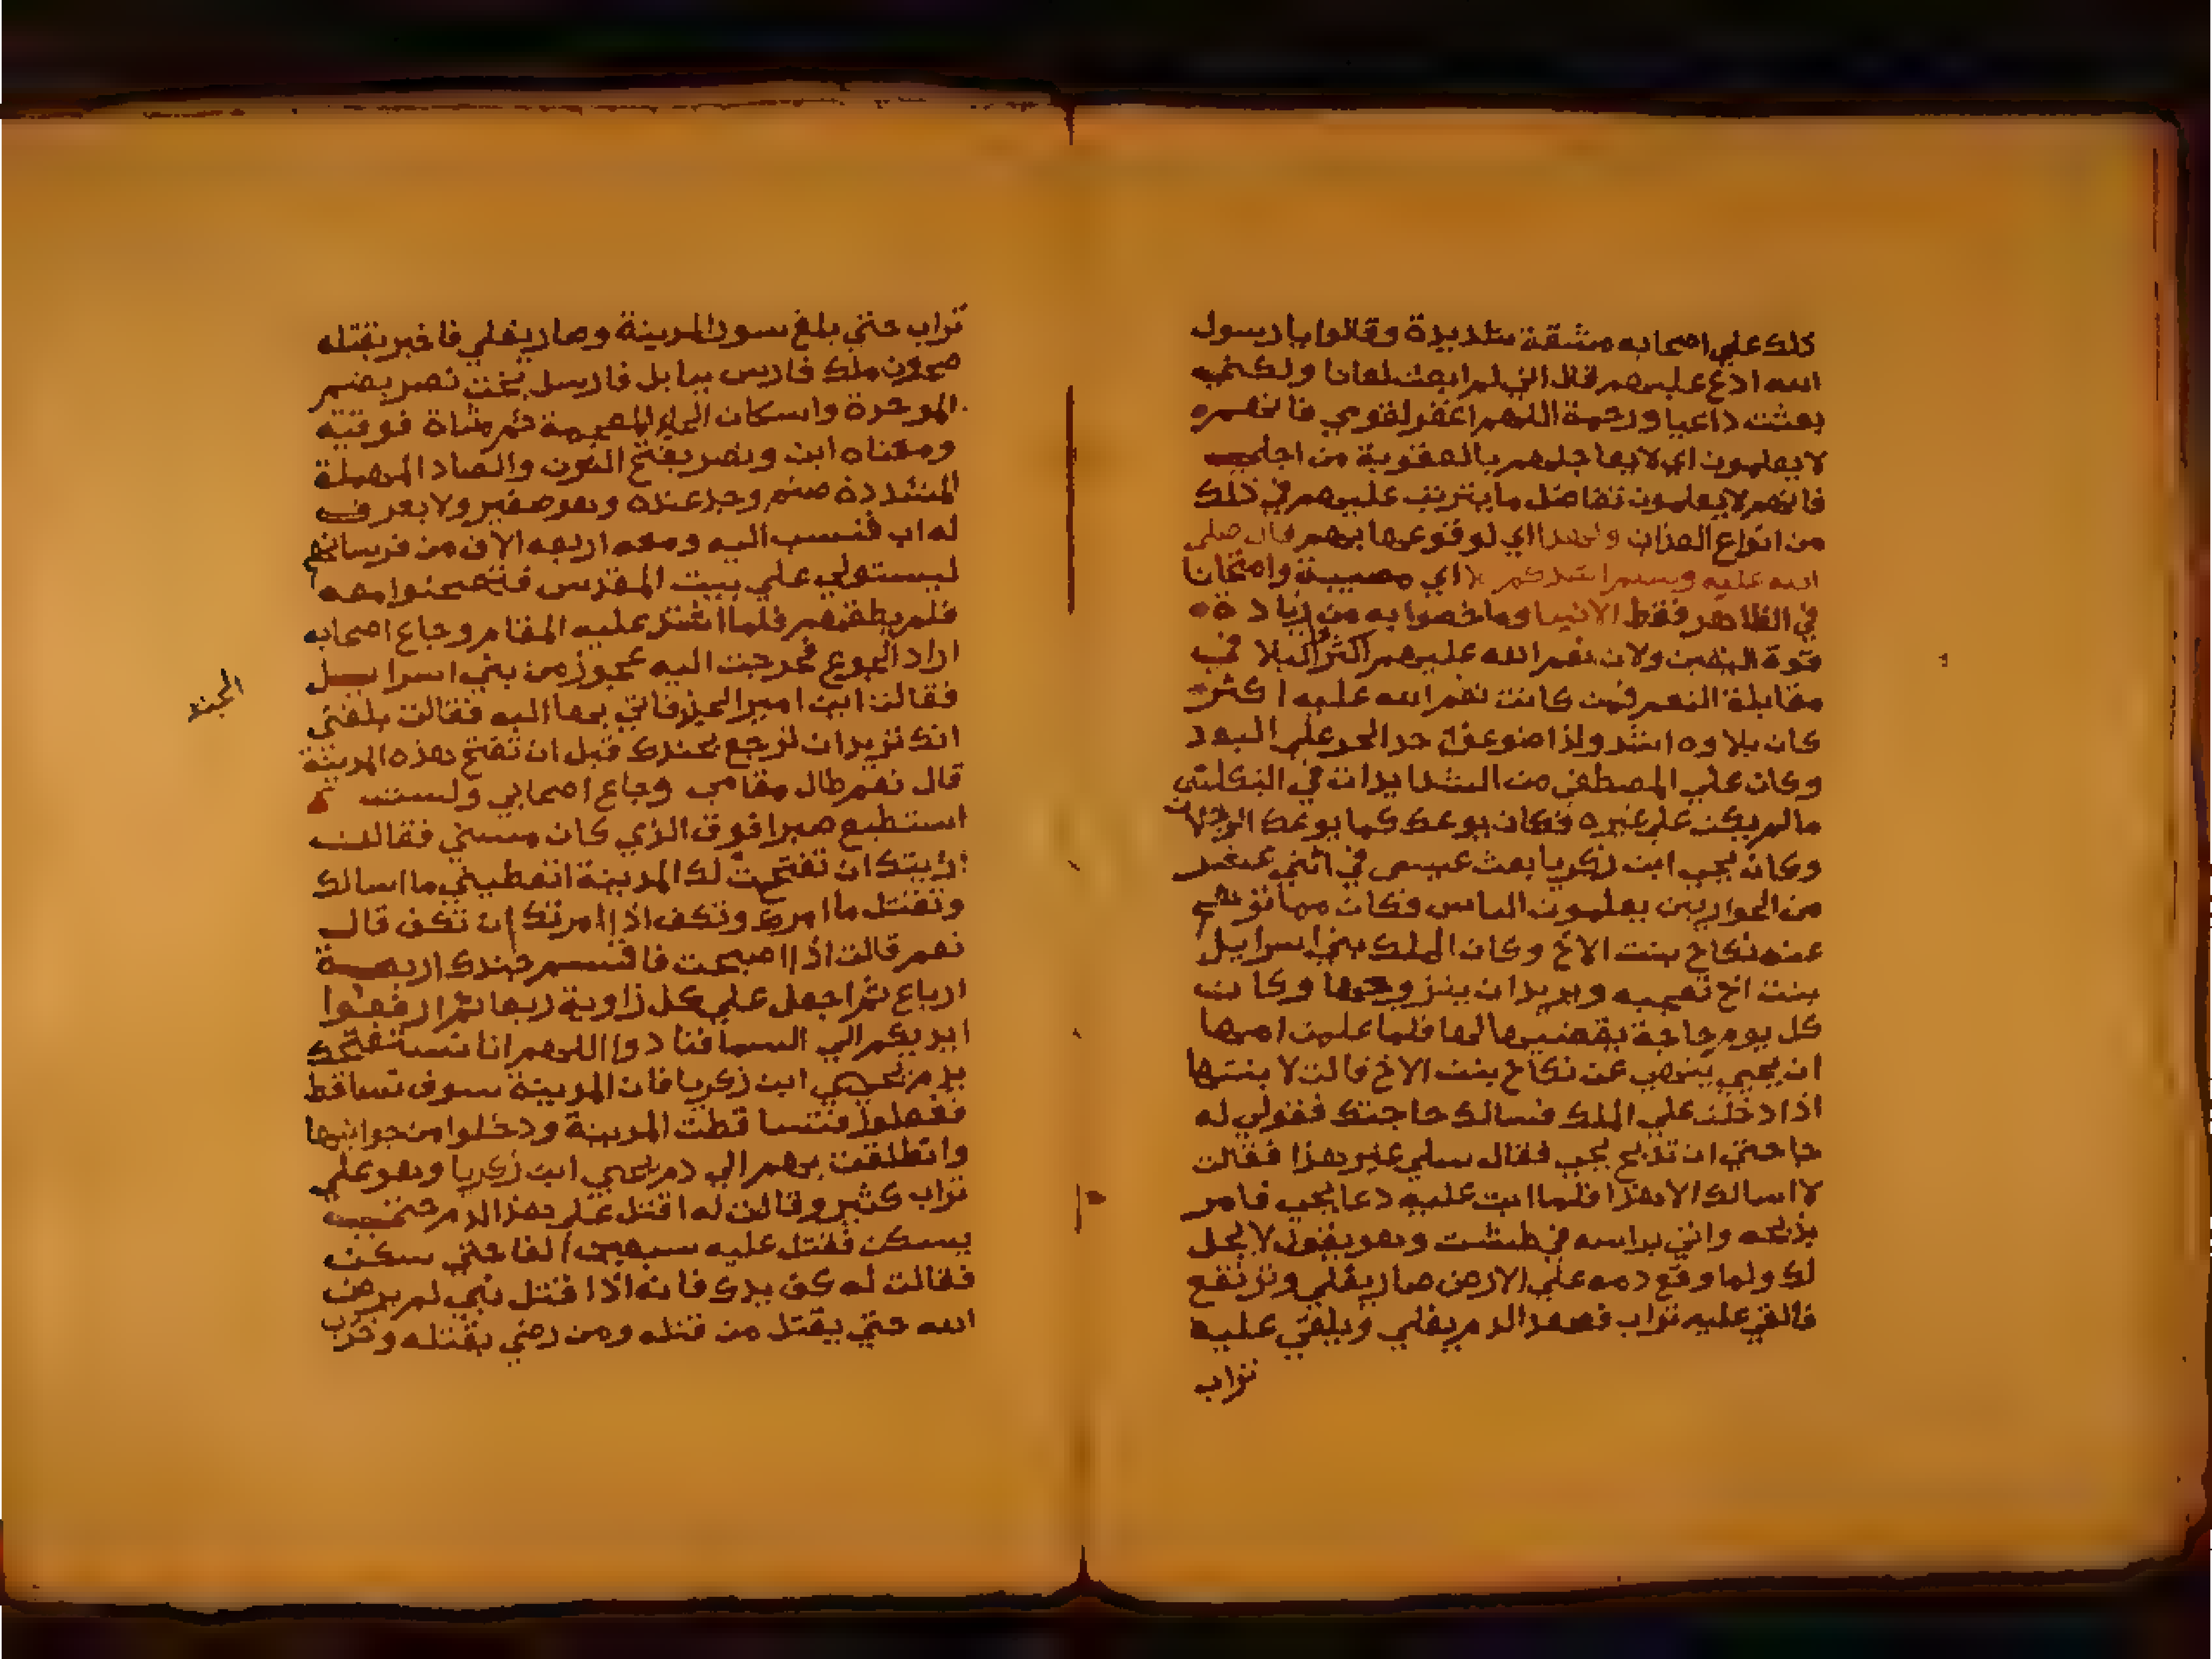 ذلك علي اصحابه مشقة شديدة وقالوا يا رسول
الله ادع عليهم قال اني لم ابعث لعانا ولكني
بعثت داعيا ورحمة اللهم اغفر لقومي فانهم
لا يعلمون اي لا يعاجلهم بالعقوبة من اجلي
فانهم لا يعلمون تفاصل ما يترتب عليهم في ذلك
من انواع العذاب ولهذا اي لوقوعها بهم قال صلي
الله عليه وسلم اشدكم بلا اي مصيبة وامتحانا
في الظاهر فقط الانبيا وما خصوا به من زيادة
قوة اليقين ولان نعم الله عليهم اكثر والبلا في
مقابلة النعم فمن كانت نعم الله عليه اكثر
كان بلاوه اشد ولذا ضوعف حد الحر علي العبد
وكان علي المصطفي من الشدايد ات في التكليف
ما لم يكن علي غيره فكان يوعك كما يوعك الرجلان
وكان يحيي ابن زكريا بعث عيسي في اثني عشر
من الحواريين يعلمون الناس فكان مما نهي
عنه نكاح بنت الاخ وكان الملك بني اسرايل
بنت اخ تعجبه ويريد ان يتزوجها وكانت
كل يوم حاجة يقضيها لها فلما علمت امها
ان يحيي ينهي عن نكاح بنت الاخ قالت لا بنتها
اذا دخلت علي الملك فسالك حاجتك فقولي له
حاجتي ان تذبح يحيي فقال سلي غير هذا فقالت
لا اسالك الا هذا فلما ابت عليه دعا يحيي فامر
بذبحه واتي براسه في طشت وهو يقول لا يحل
لك ولما وقع دمه علي الارض صار يغلي وترتفع
فالقي عليه تراب فصعد الدم يغلي ويلقي عليه
تراب
تراب حتي بلغ سور المدينة وصار يغلي فاخبر بقتله
صحون ملك فارس ببابل فارسل بخت نصر بضم
الموحدة واسكان الخاء المعجمة ثم مثناة فوقية
ومعناه ابن ونصر بفتح النون والصاد المهملة
المشددة صنم وجد عنده وهو صغير ولا يعرف
له اب فنسب اليه ومعه اربعه الاف من فرسانهم
ليستولي علي بيت المقدس فتحصنوا معه
فلم يطقهم فلما اشتد عليه المقام وجاع اصحابه
اراد الرجوع فخرجت اليه عجوز من بني اسراييل
فقالت اين امير الجند فاتي بها اليه فقالت بلغني
الجند
انك تريد ان ترجع بجندك قبل ان تفتح هذه المدينة
قال نعم طال مقامي وجاع اصحابي ولست
استطيع صبرا فوق الذي كان مسني فقالت
اريتك ان تفتحت لك المدينة اتعطيني ما اسالك
وتقتل ما امرك وتكف اذا امرتك ان تكف قال
نعم قالت اذا اصبحت فاقسم جندك اربعة
ارباع ثم اجعل علي كل زاوية ربعا ثم ارفعوا
ايديكم الي السما فنادوا اللهم انا نستفتحك
بدم يحيي ابن زكريا فان المدينة سوف تساقط
ففعلوا فتساقطت المدينة ودخلوا من جوانبها
وانطلقت بهم الي دم يحيي ابن زكريا وهو علي
تراب كثير وقالت له اقتل علي هذا الدم حتي
يسكن فقتل عليه سبعين الفا حتي سكن
فقالت له كف يدك فانه اذا قتل نبي لم يرض
الله حتي يقتل من قتله ومن رضي بقتله وخرب